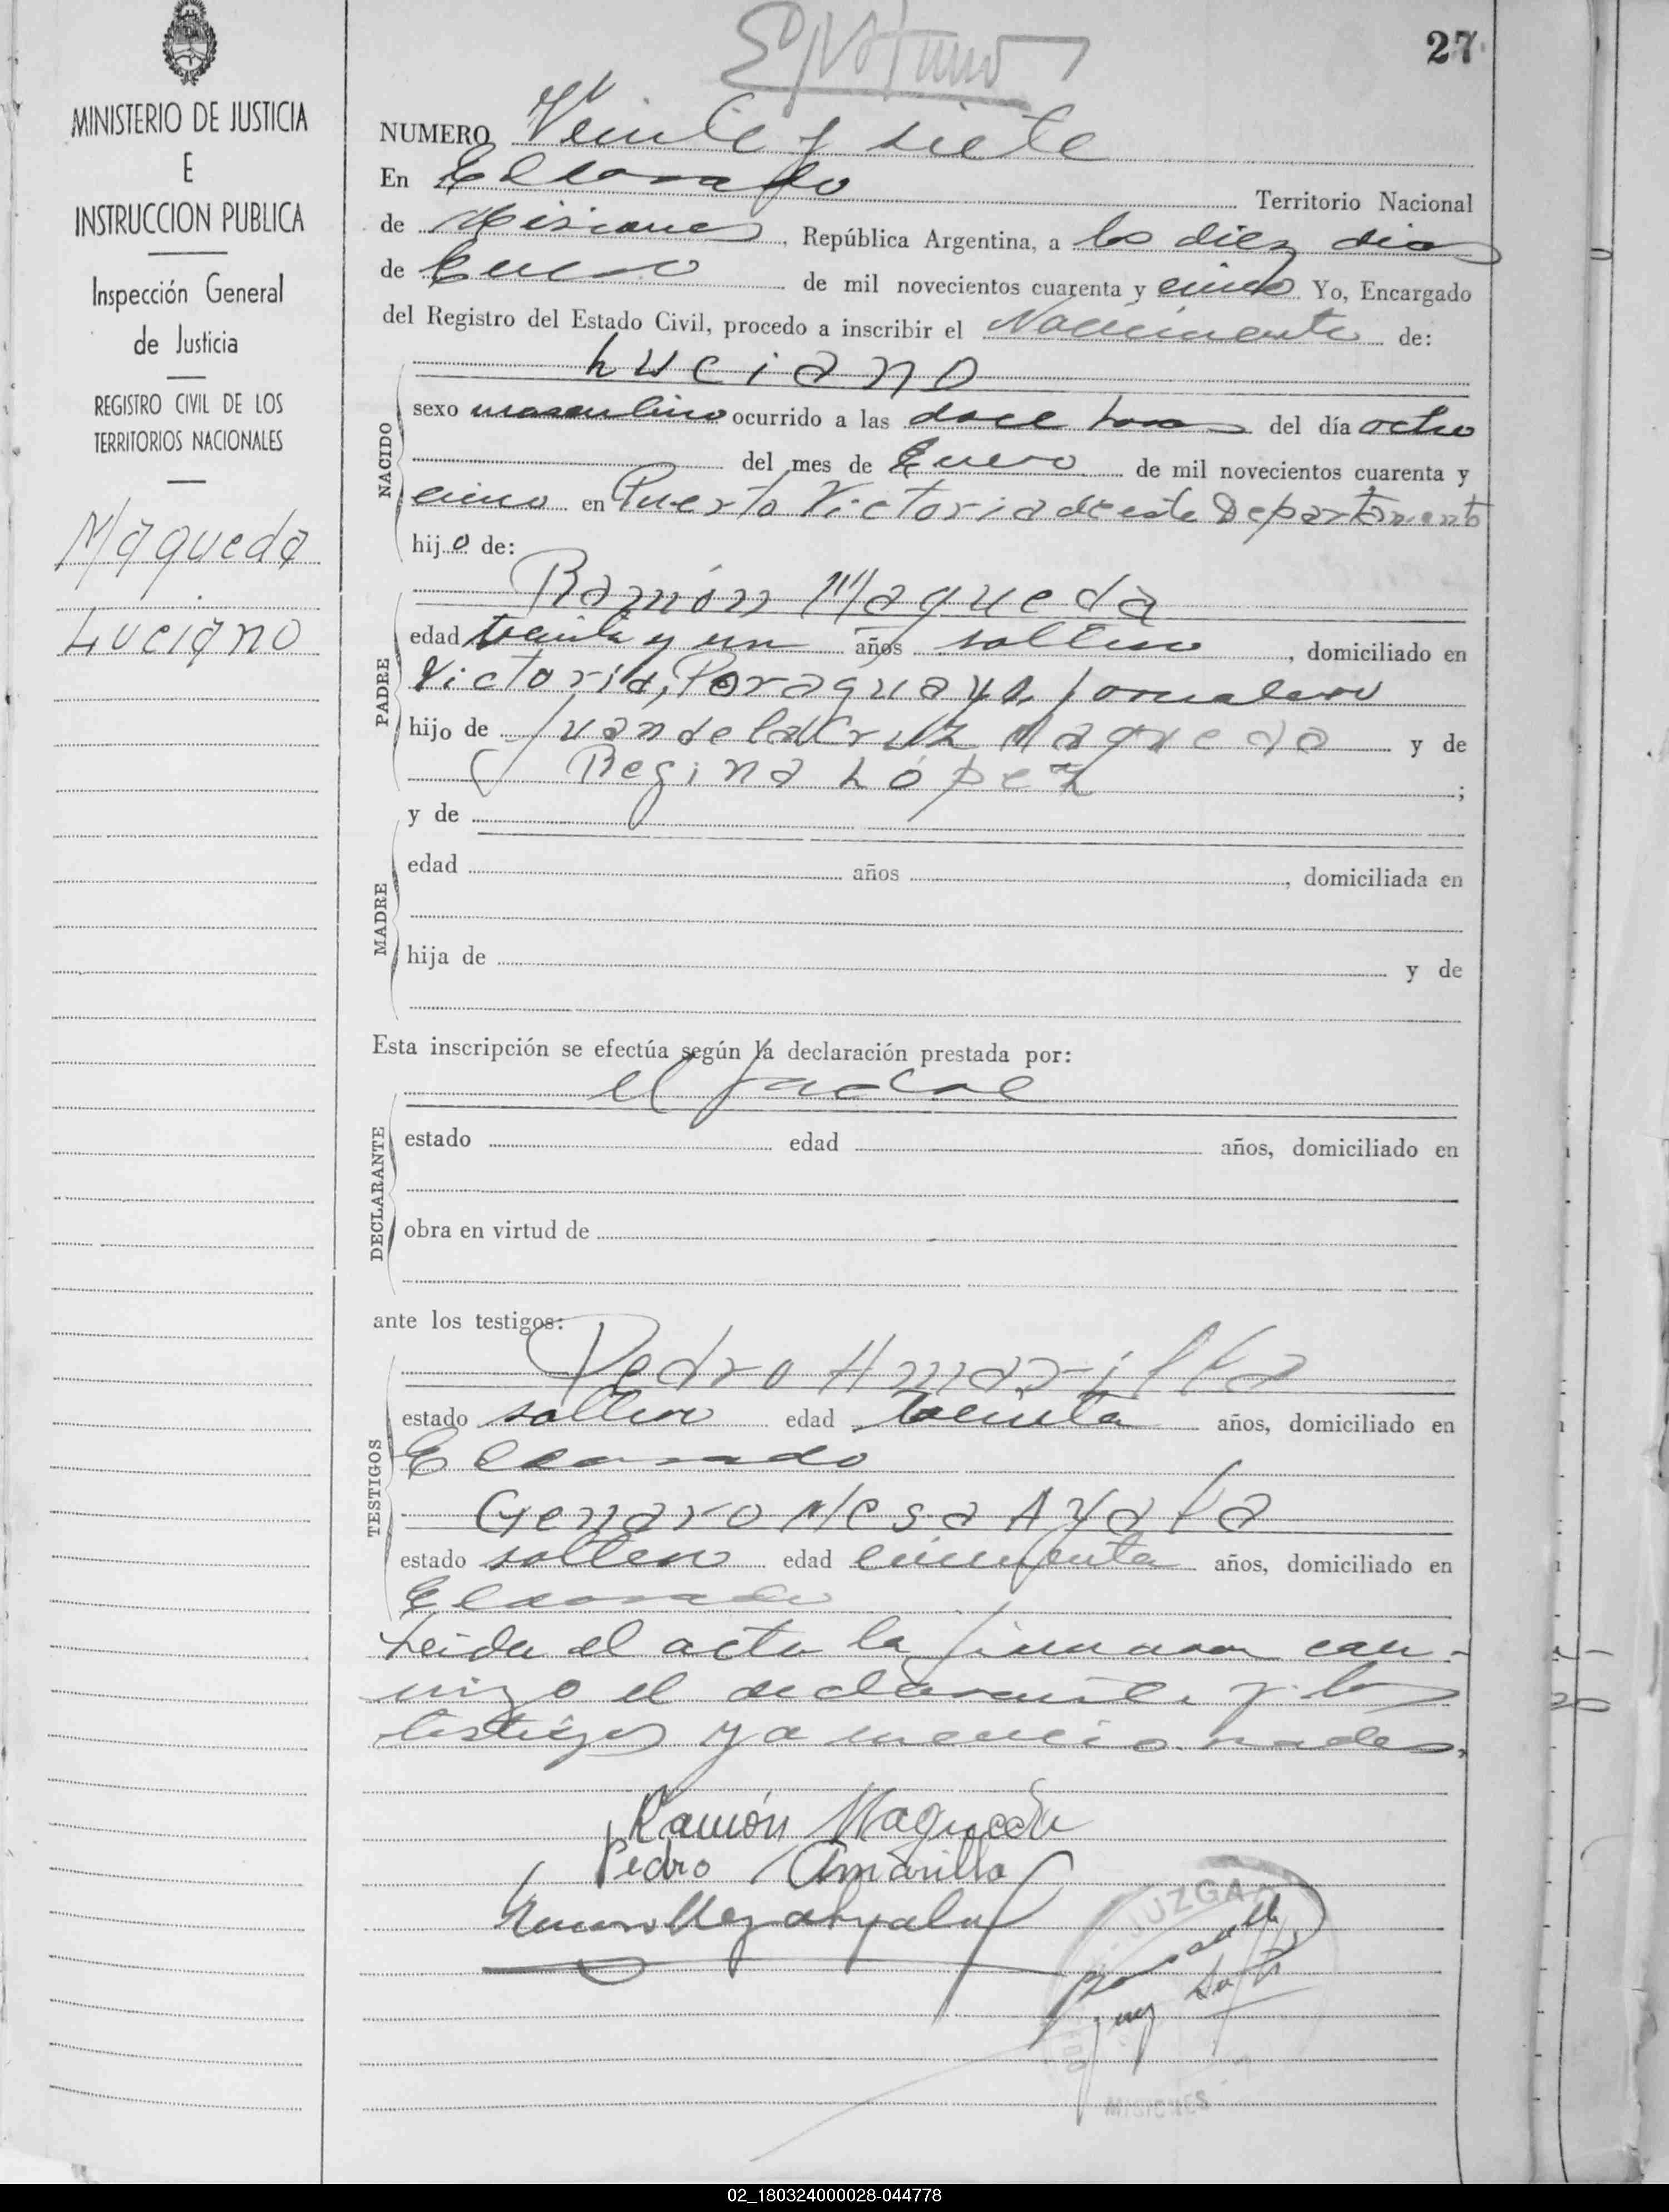 27
MINISTERIO DE JUSTICIA
E
INSTRUCCION PUBLICA
Inspección General
de Justicia
REGISTRO CIVIL DE LOS
TERRITORIOS NACIONALES
Maqueda
Luciano
NUMERO Veinte y siete
En Eldorado Territorio Nacional
de Misiones, República Argentina, a los diez dias
de Enero de mil novecientos cuarenta y cinco Yo, Encargado
del Registro del Estado Civil, procedo a inscribir el Nacimiento de:
Luciano
NACIDO
sexo masculino ocurrido a las doce horas del día ocho
del mes de Enero de mil novecientos cuarenta y
cinco en Puerto Victoria de este Departamento
hijo de:
Ramón Maqueda
PADRE
edad treinta y un años soltero, domiciliado en
Victoria, Paraguayo, jornalero
hijo de Juan de la Cruz Maqueda y de
Regina López;
y de
MADRE
edad años, domiciliada en
hija de y de
Esta inscripción se efectúa según la declaración prestada por:
el padre
DECLARANTE
estado edad años, domiciliado en
obra en virtud de
ante los testigos:
Pedro Amarilla
TESTIGOS
estado soltero edad treinta años, domiciliado en
Eldorado
Genaro Mesa Ayala
estado soltero edad cincuenta años, domiciliado en
Eldorado
Leida el acta la firmaron con-
migo el declarante y los
testigos ya mencionados.
Ramón Maqueda
Pedro Amarilla
Meza Ayala
JUZGA
MISIONES
02_180324000028-044778